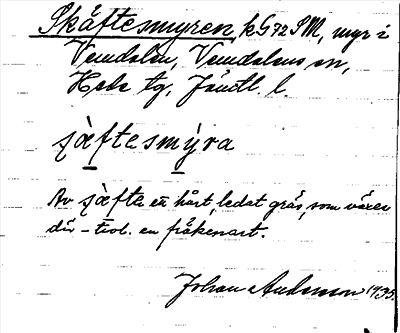 Skäftesmyren, kG72SM, myr i
Vemdalen, Vemdalens sn,
Hede tg, Jämtl. l.
ʃàftesmýra
Av ʃàfte en hårt, ledat gräs, som växer
där – trol. en fräkenart.
Johan Andersson 1935.